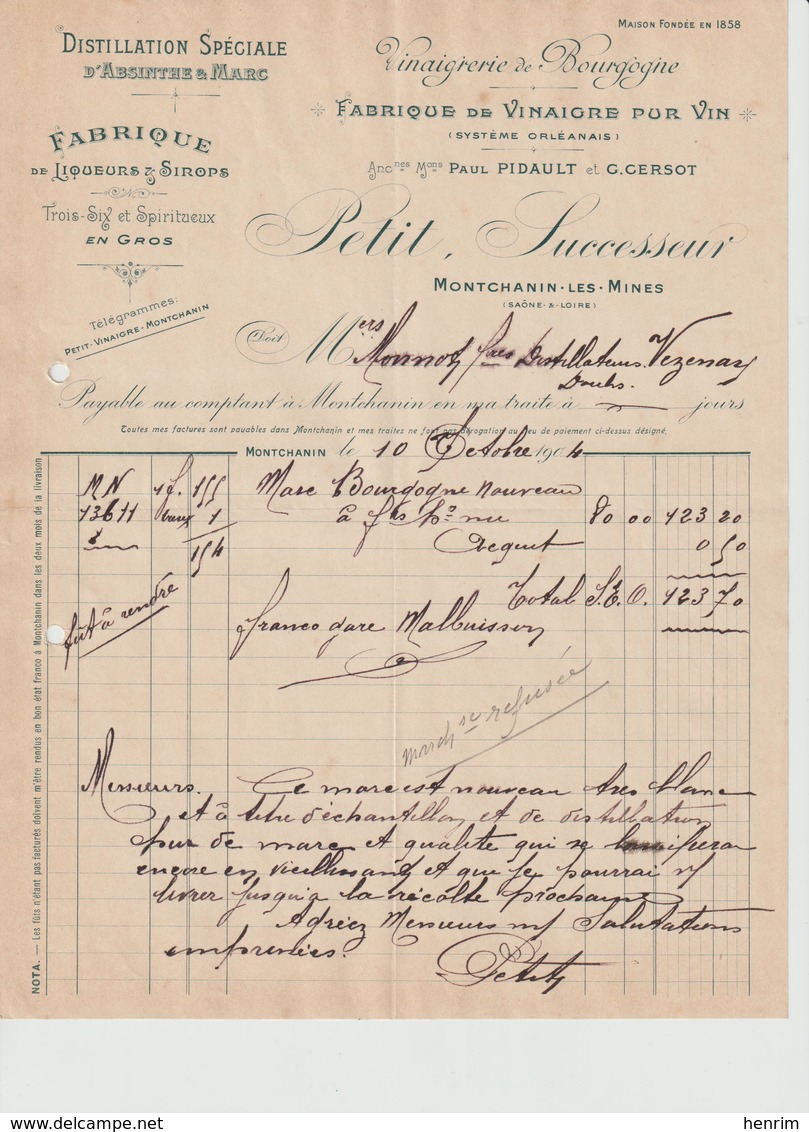 MAISON FONDÉE EN 1858
DISTILLATION SPÉCIALE
D'ABSINTHE & MARC
FABRIQUE
DE LIQUEURS & SIROPS
Trois-Six et Spiritueux
EN GROS
Télégrammes:
PETIT-VINAIGRE-MONTCHANIN
Vinaigrerie de Bourgogne
FABRIQUE DE VINAIGRE PUR VIN
(SYSTÈME ORLÉANAIS)
Anc.nes Mons PAUL PIDAULT et G. GERSOT
Petit, Successeur
MONTCHANIN-LES-MINES
(SAÔNE-&-LOIRE)
Doit Mers frères Distillateurs Vezenay
Doubs.
Payable au comptant à Montchanin en ma traite à jours
Toutes mes factures sont payables dans Montchanin et mes traites ne font pas dérogation au lieu de paiement ci-dessus désigné.
MONTCHANIN le 10 Octobre 1904
MN 1 f. 155 Marc Bourgogne nouveau
13611 1 à nu 80 00 123 20
154 Acquit 0 50
Total S.E.O. 123 70
fût à rendre
franco gare Malbuisson
march se refusée
Messieurs. Ce marc est nouveau très blanc
et à titre d'échantillon et de distillation
pur de marc et qualité qui se
encore en vieillissant et que je pourrai v/
livrer jusqu'à la récolte prochaine
Agréez Messieurs m/ Salutations
empressées.
Petit
NOTA. — Les fûts n'étant pas facturés doivent m'être rendus en bon état franco à Montchanin dans les deux mois de la livraison
www.delcampe.net
henrim